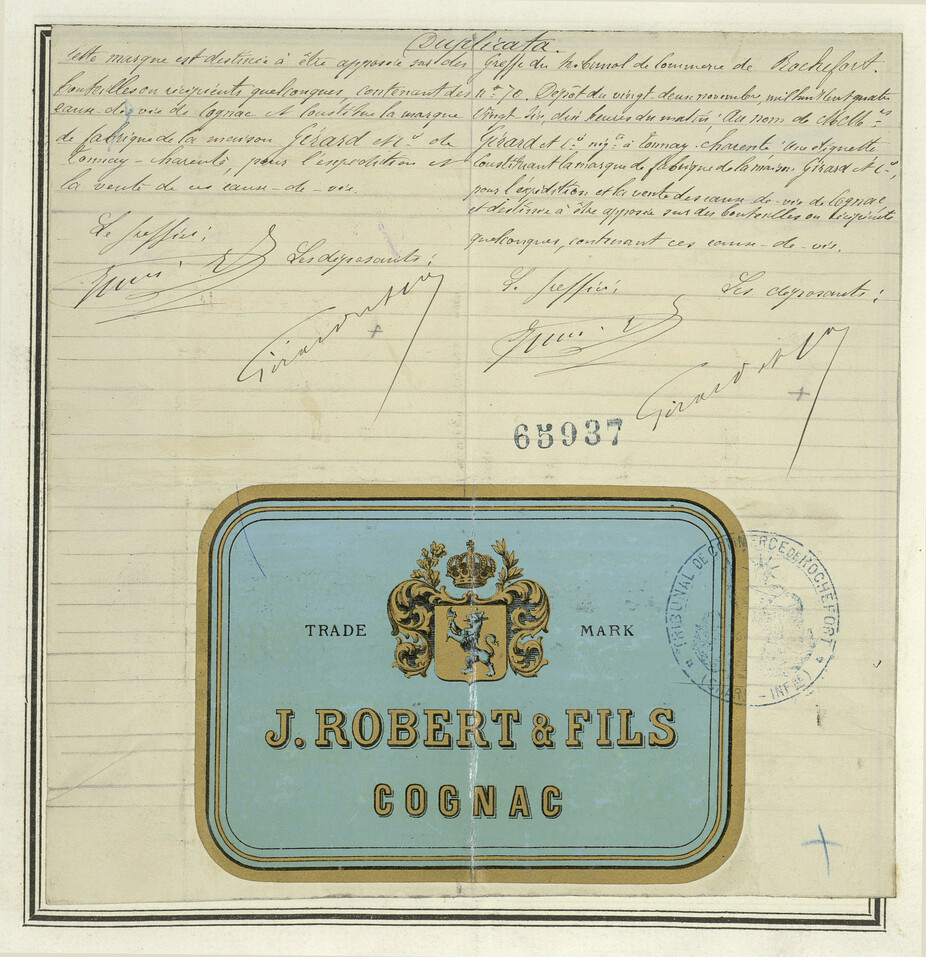 Duplicata.
Cette marque est destinée à être apposée sur des
bouteilles ou récipients quelconques contenant des
eaux-de-vie de Cognac et constitue la marque
de fabrique de la maison Girard et Cie. de
Tonnay-Charente, pour l'expédition et
la vente de ces eaux-de-vie.
Le greffier;
Les déposants;
Girard et Cie
Greffe du Tribunal de Commerce de Rochefort.
No. 70. Dépôt du vingt-deux novembre, mil huit cent quatre
vingt six, dix heures du matin, au nom de MM.
Girard et Cie. négts. à Tonnay-Charente. Une étiquette
constituant la marque de fabrique de la maison Girard et Cie,
pour l'expédition et la vente des eaux-de-vie de Cognac,
et destinée à être apposée sur des bouteilles ou récipients
quelconques, contenant ces eaux-de-vie.
Le greffier;
Les déposants;
Girard et Cie
65937
TRADE MARK
J. ROBERT & FILS
COGNAC
TRIBUNAL DE COMMERCE DE ROCHEFORT
(CHARTE-INFRE)